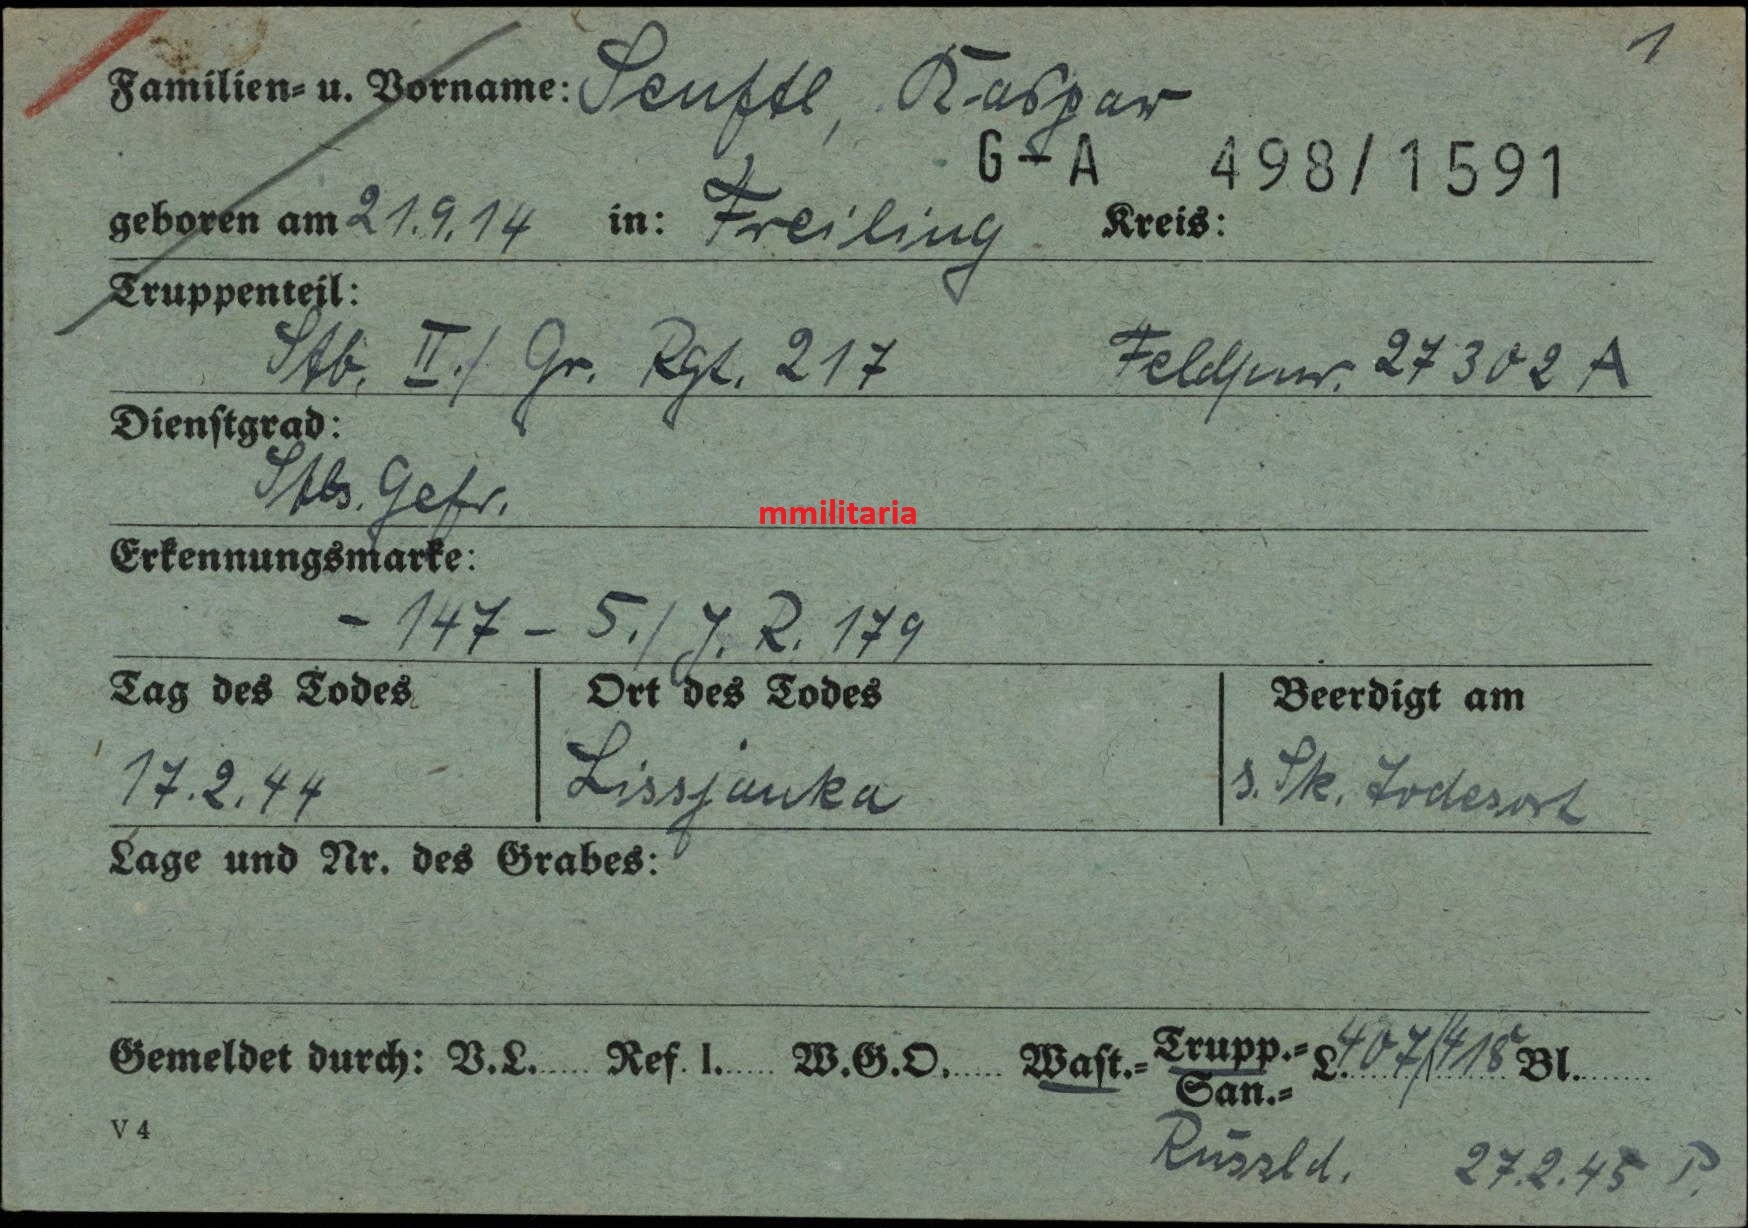 1
Familien= u. Vorname: Senftl, Kaspar
G-A 498/1591
geboren am 21.9.14 in: Freiling Kreis:
Truppenteil:
Stb. II./ Gr. Rgt. 217 Feldpnr. 27302 A
Dienstgrad:
Stbs. Gefr.
mmilitaria
Erkennungsmarke:
- 147 - 5./ J. R. 179
Tag des Todes Ort des Todes Beerdigt am
17.2.44 Lissjanka s. Sk. Todesort
Lage und Nr. des Grabes:
Gemeldet durch: V.L..... Ref. I...... W.G.O...... Wast.= Trupp.= L. 407/418 Bl.........
San.=
V 4
Russld. 27.2.45 P.